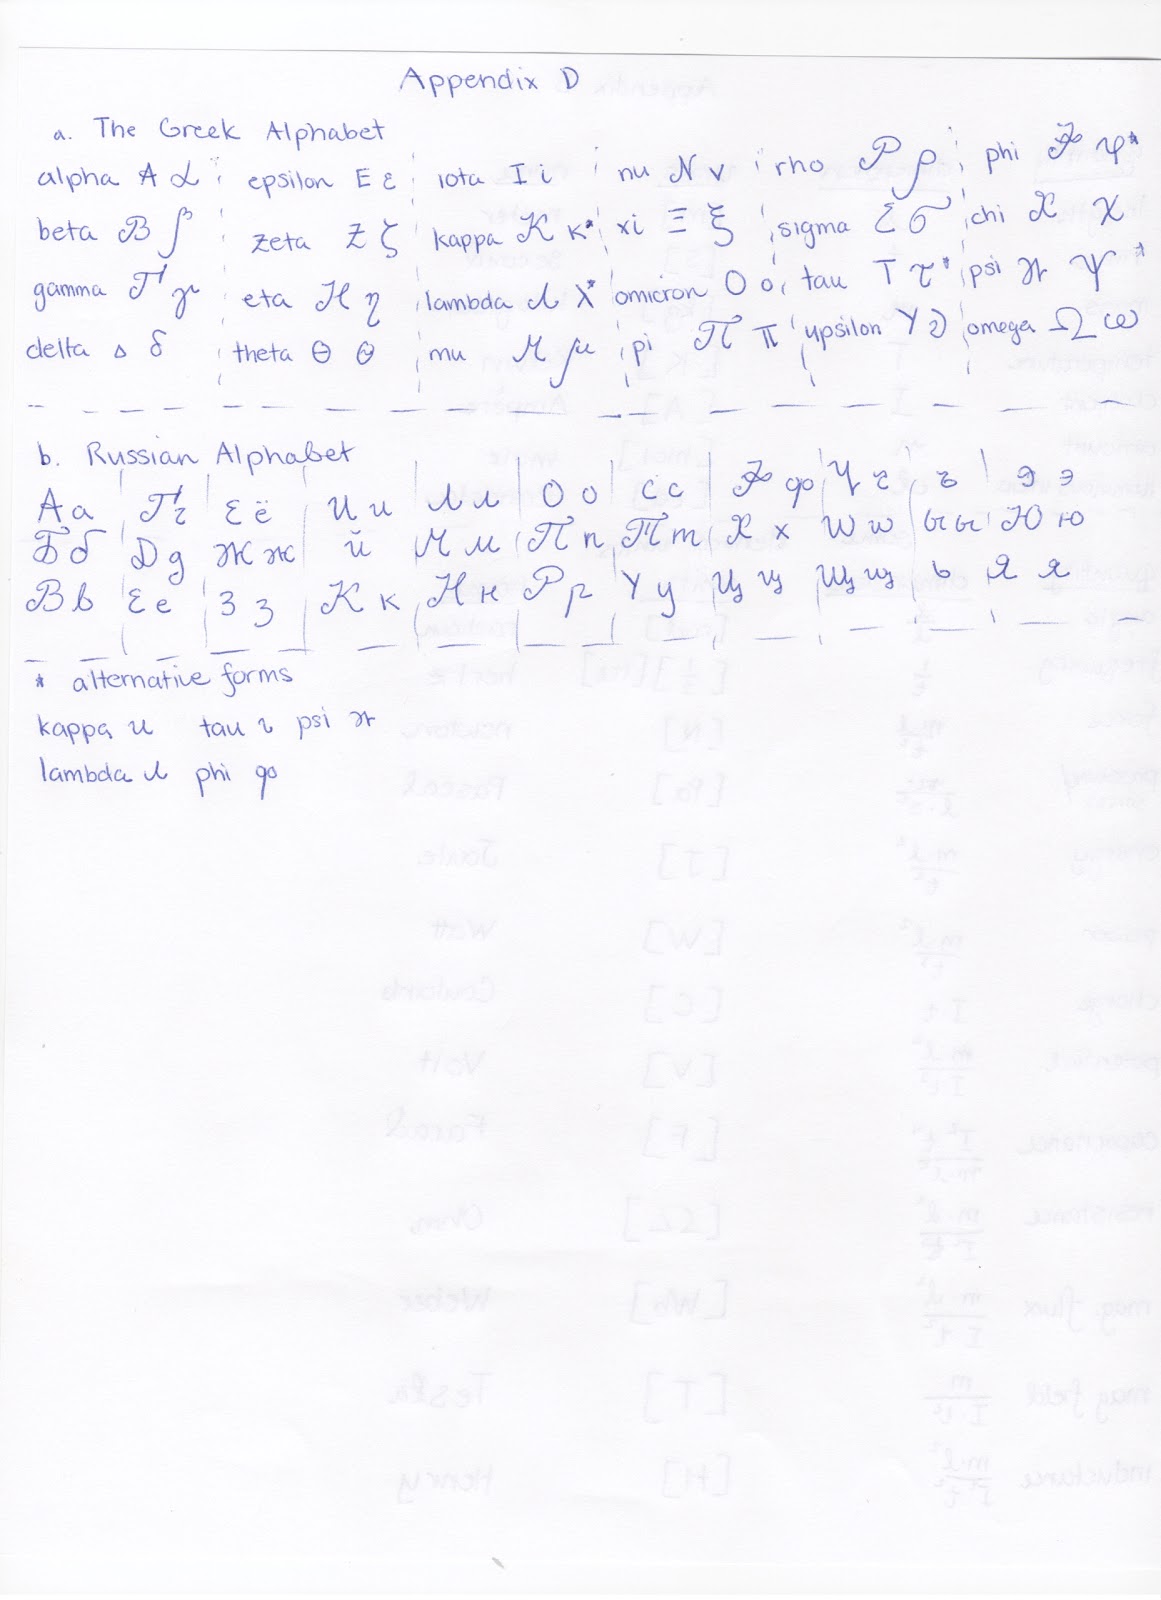 Appendix D
a. The Greek Alphabet
alpha Α α epsilon Ε ε iota Ι i nu Ν ν rho Ρ ρ phi Φ φ*
beta Β β zeta Ζ ζ kappa Κ κ* xi Ξ ξ sigma Σ σ chi Χ χ
gamma Γ γ eta Η η lambda Λ λ* omicron Ο ο tau Τ τ* psi Ψ ψ*
delta Δ δ theta Θ θ mu Μ μ pi Π π upsilon Υ υ omega Ω ω
b. Russian Alphabet
А а Г г Ё ё И и Л л О о С с Ф ф Ч ч ъ Э э
Б б Д д Ж ж й М м П п Т т Х х Ш ш Ы ы Ю ю
В в Е е З з К к Н н Р р У у Ц ц Щ щ ь Я я
* alternative forms
kappa ϰ tau τ psi ψ
lambda λ phi φ